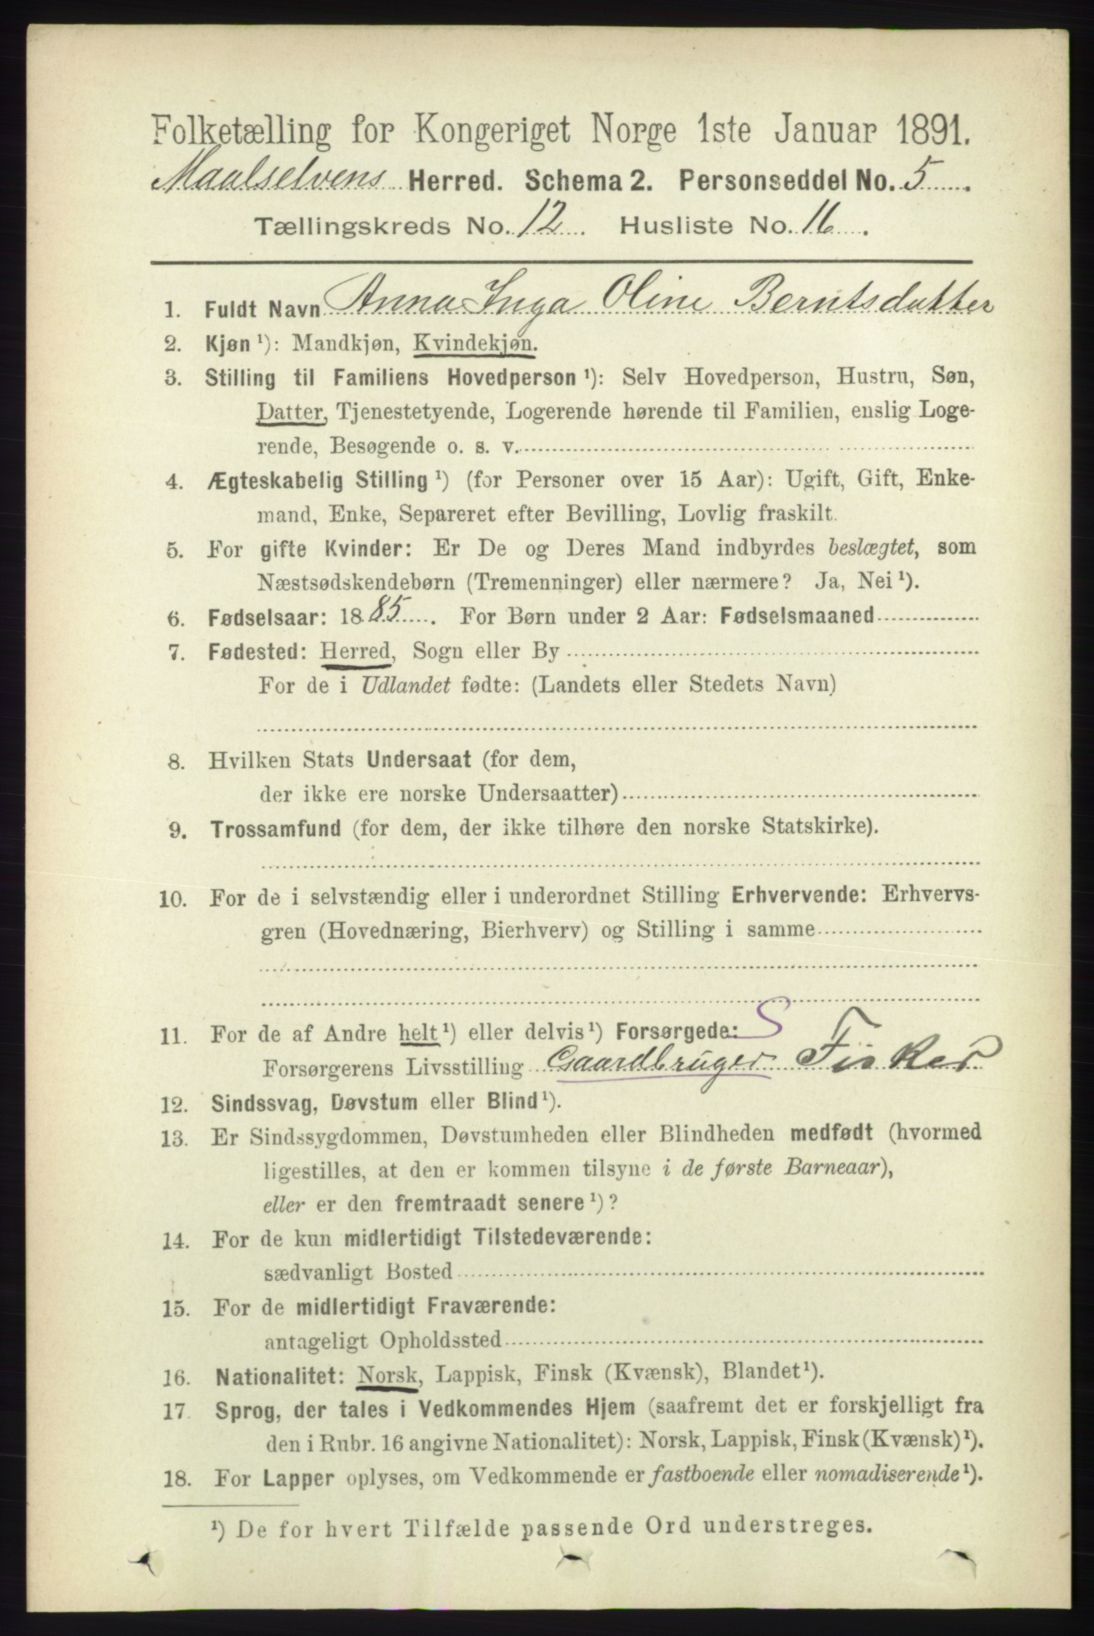 Folketælling for Kongeriget Norge 1ste Januar 1891.
Maalselvens Herred. Schema 2. Personseddel No. 5
Tællingskreds No. 12. Husliste No. 16.
1. Fuldt Navn Anna Inga Oline Berntsdatter
2. Kjøn ¹): Mandkjøn, Kvindekjøn.
3. Stilling til Familiens Hovedperson ¹): Selv Hovedperson, Hustru, Søn,
Datter, Tjenestetyende, Logerende hørende til Familien, enslig Loge-
rende, Besøgende o. s. v.
4. Ægteskabelig Stilling ¹) (for Personer over 15 Aar): Ugift, Gift, Enke-
mand, Enke, Separeret efter Bevilling, Lovlig fraskilt.
5. For gifte Kvinder: Er De og Deres Mand indbyrdes beslægtet, som
Næstsødskendebørn (Tremenninger) eller nærmere? Ja, Nei ¹).
6. Fødselsaar: 1885. For Børn under 2 Aar: Fødselsmaaned
7. Fødested: Herred, Sogn eller By
For de i Udlandet fødte: (Landets eller Stedets Navn)
8. Hvilken Stats Undersaat (for dem,
der ikke ere norske Undersaatter)
9. Trossamfund (for dem, der ikke tilhøre den norske Statskirke).
10. For de i selvstændig eller i underordnet Stilling Erhvervende: Erhvervs-
gren (Hovednæring, Bierhverv) og Stilling i samme
11. For de af Andre helt ¹) eller delvis ¹) Forsørgede: S
Forsørgerens Livsstilling Gaardbruger Fisker
12. Sindssvag, Døvstum eller Blind ¹).
13. Er Sindssygdommen, Døvstumheden eller Blindheden medfødt (hvormed
ligestilles, at den er kommen tilsyne i de første Barneaar),
eller er den fremtraadt senere ¹)?
14. For de kun midlertidigt Tilstedeværende:
sædvanligt Bosted
15. For de midlertidigt Fraværende:
antageligt Opholdssted
16. Nationalitet: Norsk, Lappisk, Finsk (Kvænsk), Blandet ¹).
17. Sprog, der tales i Vedkommendes Hjem (saafremt det er forskjelligt fra
den i Rubr. 16 angivne Nationalitet): Norsk, Lappisk, Finsk (Kvænsk) ¹).
18. For Lapper oplyses, om Vedkommende er fastboende eller nomadiserende ¹).
¹) De for hvert Tilfælde passende Ord understreges.